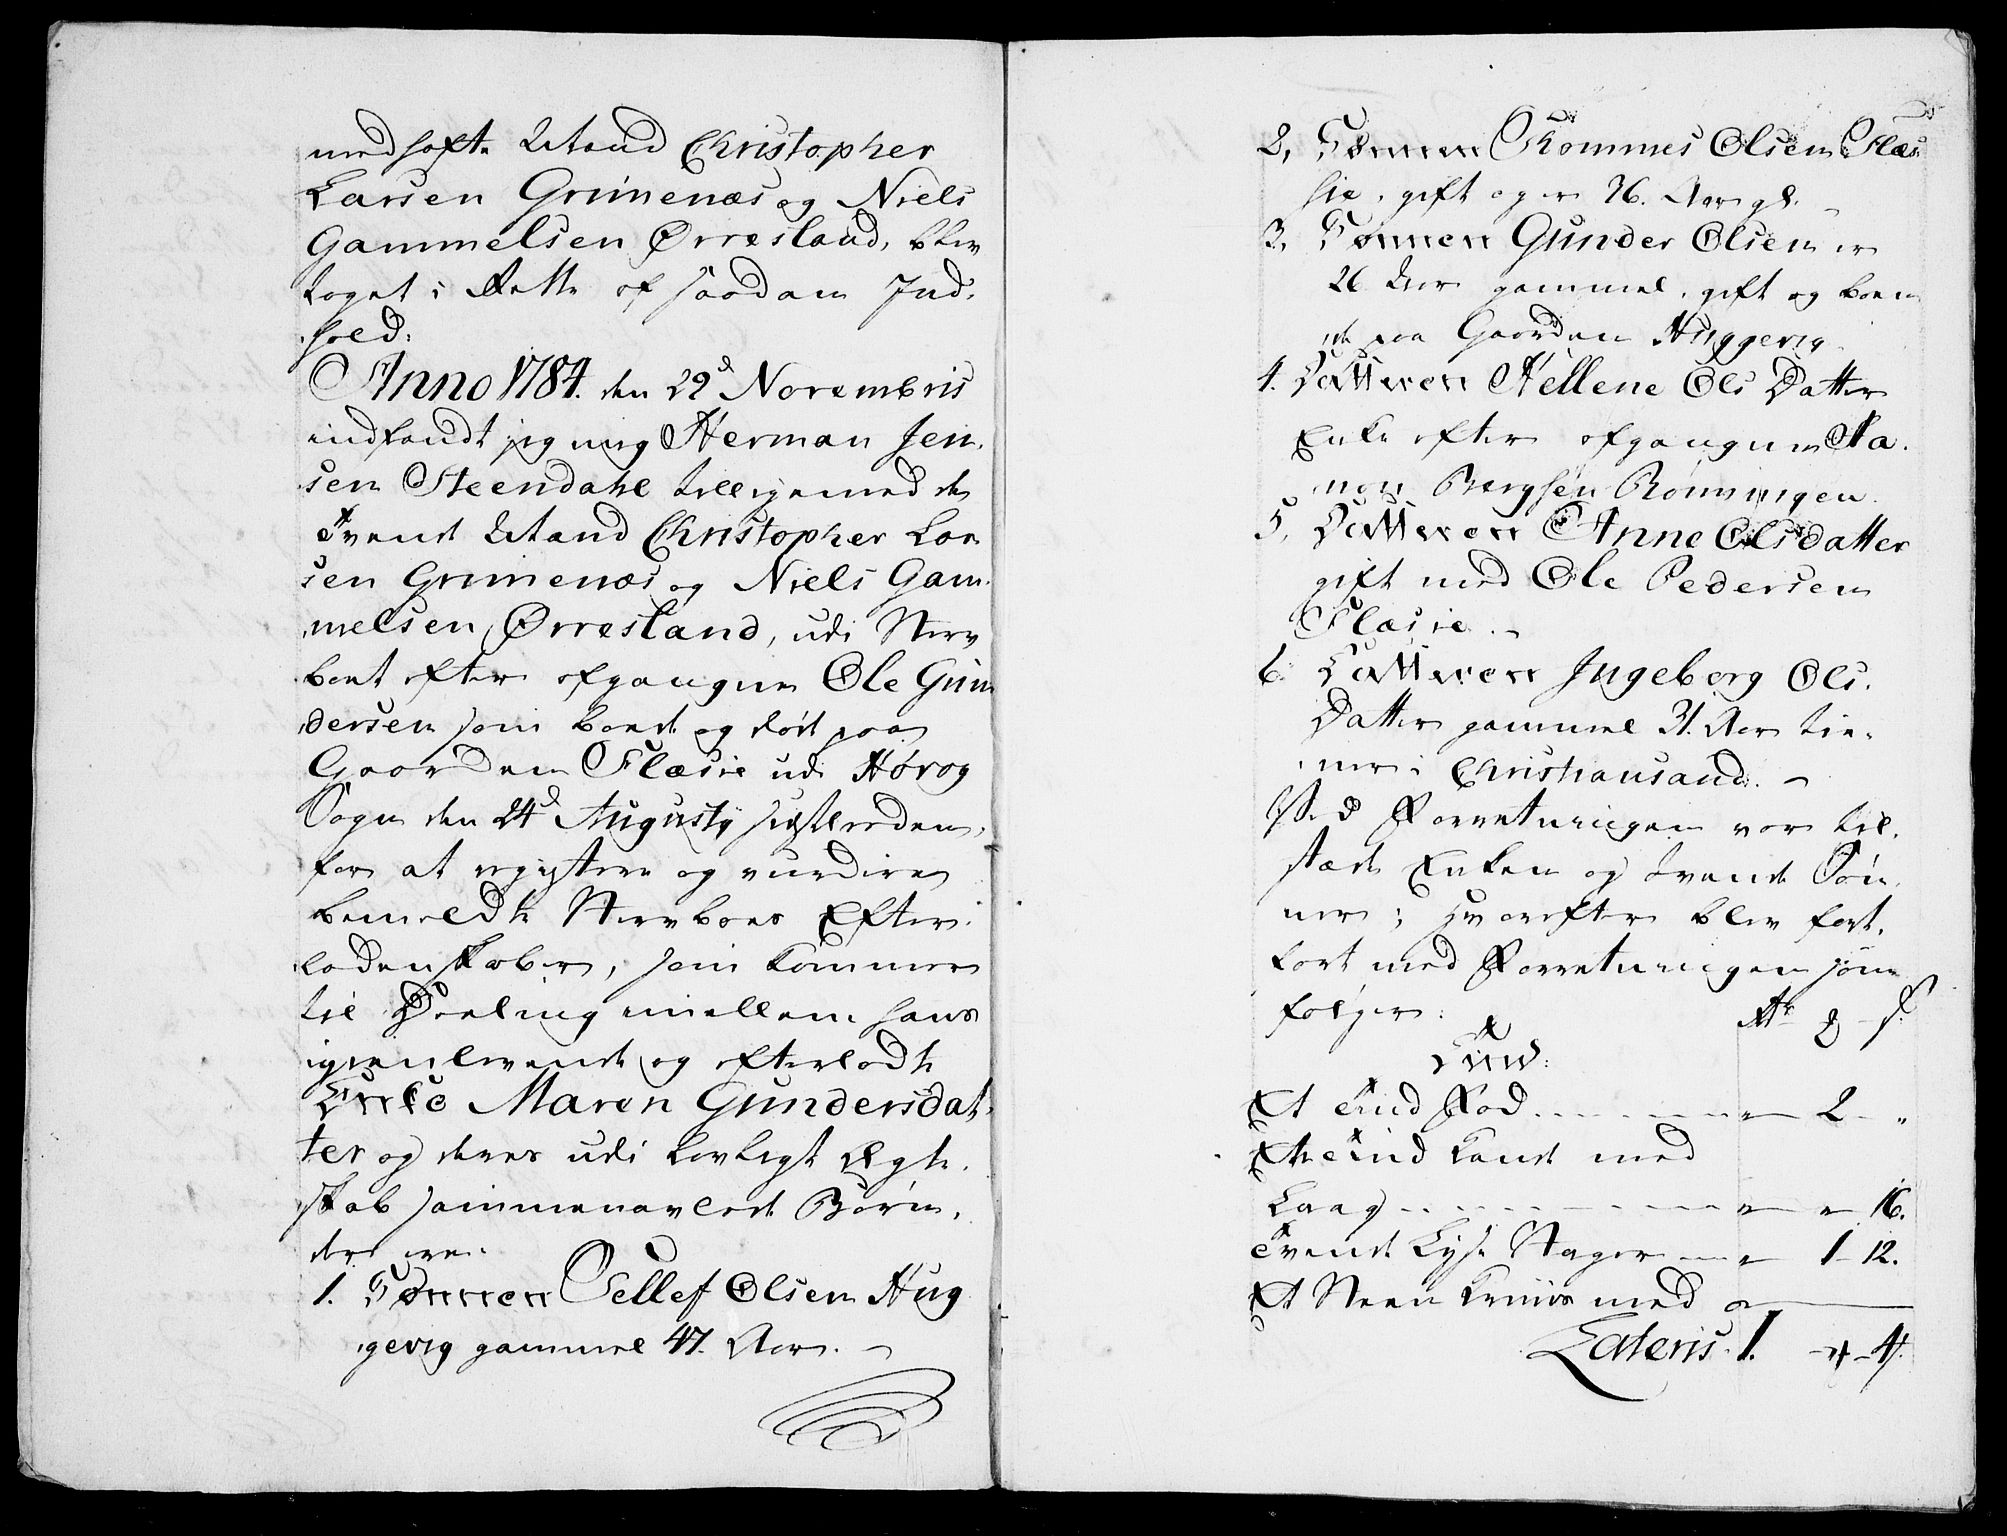 medhafte Mænd Christopher
Larsen Grimenæs og Niels
Gammelsen Ørresland, blev
taget i Rette af saadan Ind-
hold:
Anno 1784. den 29d Novembris
indfandt jeg mig Herman Jen-
sen Steendahl tilligemed de
tvende Mænd Christopher Lar
sen Grimenæs og Niels Gam-
melsen Ørresland, udi Sterv
boet efter afgangne Ole Gun
dersen som boede og døde paa
Gaarden Flæsie udi Høvog
Sogn den 24d Augusty sidstleeden,
for at registere og vurdire
bemeldte Stervboes Efter-
ladenskaber, som kommer
til Deeling imellem hans
igienlevende og efterladte
Enke Maren Gundersdat-
ter og deres udi lovligt Ægte-
skab sammenavlede Børn,
der ere:
1. Sønnen Tellef Olsen Hug
gevig gammel 47. Aar. -
2, Sønnen Tommes Olsen Flæ-
sie, gift og er 36. Aar gl. -
3, Sønnen Gunder Olsen er
26 Aar gammel, gift og boen
de paa Gaarden Huggevig
4. Datteren Hellene Ols Datter
Enke efter afgangne Aa-
non Bergsen Rønningen.
5, Datteren Anne Olsdatter
gift med Ole Pedersen
Flæsie. -
6. Datteren Ingeborg Ols-
Datter gammel 31. Aar tie-
ner i Christiansand. -
Ved Forretningen var til-
stæde Enken og tvende Søn-
ner; hvorefter blev fort-
fart med Forretningen som
følger: Rd - s.
Tind:
Et tind Fad - 2 - "
En tind Kande med
Laag - - 16.
Tvende Lyse Stager - 1 - 12.
Et Steen Kruus med
Lateris. 1. - 4 - 4.